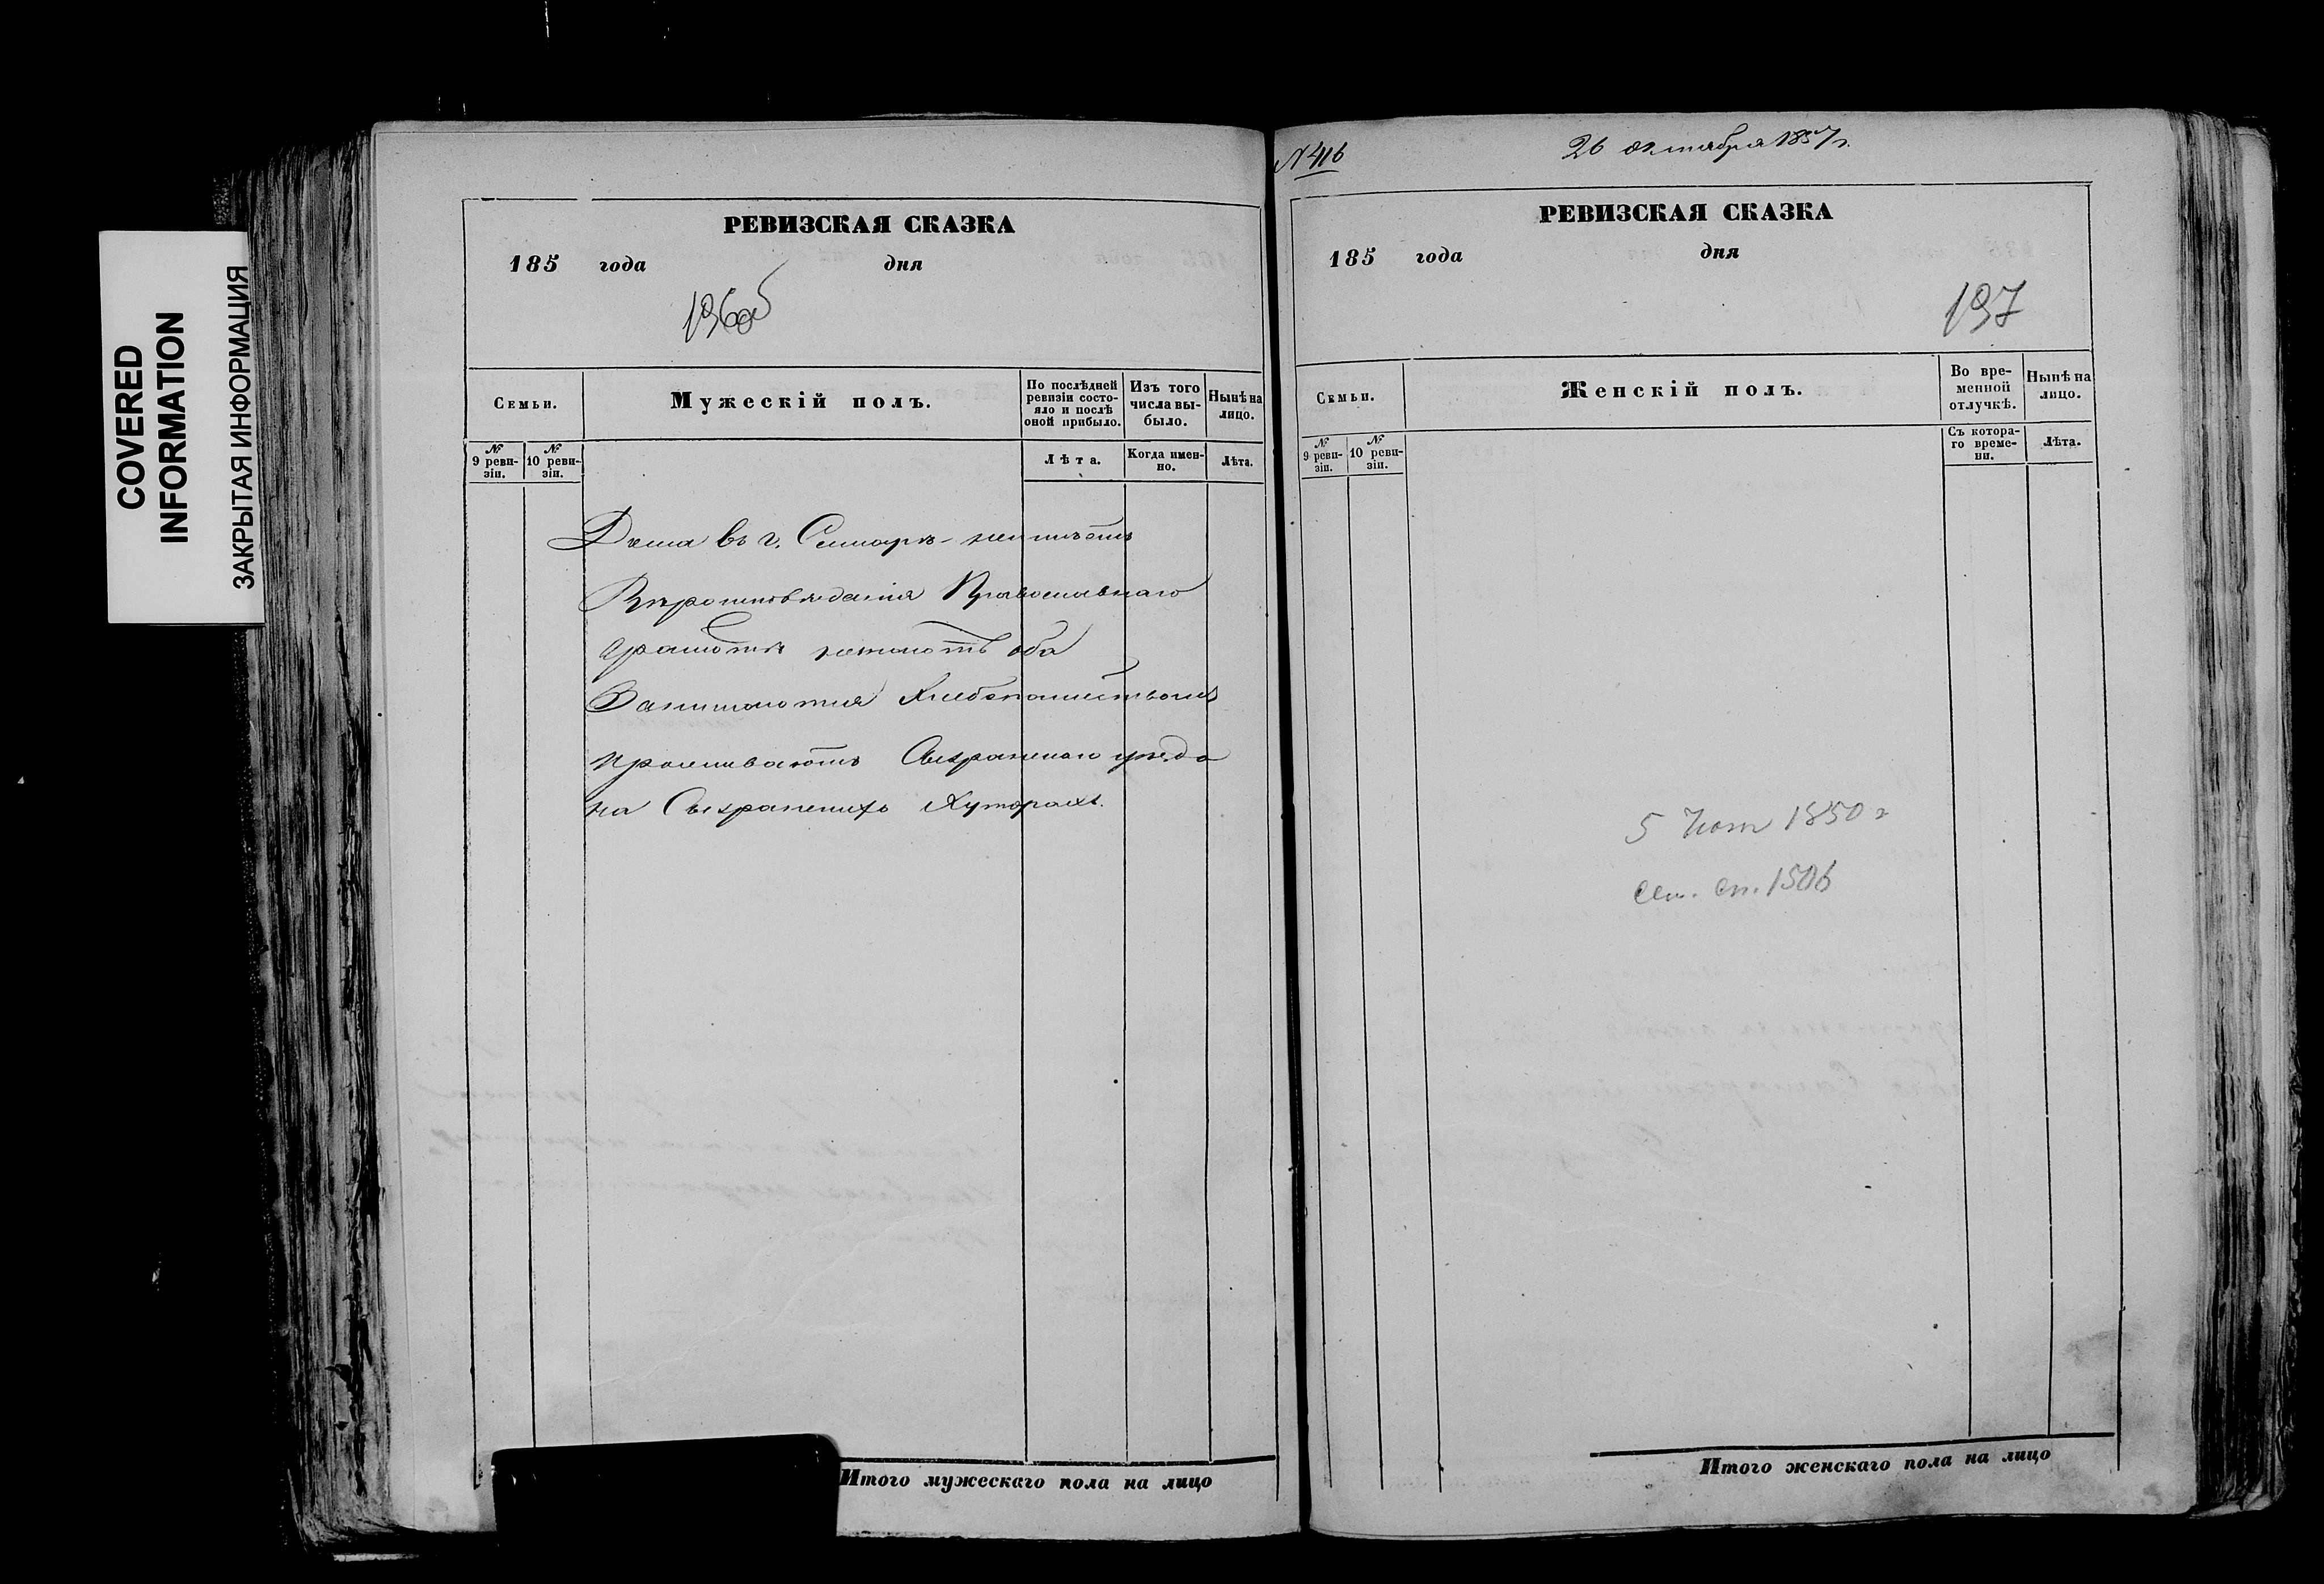 COVERED
INFORMATION
ЗАКРЫТАЯ ИНФОРМАЦИЯ
РЕВИЗСКАЯ СКАЗКА
185 года дня
196об
Семьи.
Мужескій полъ.
По послѣдней ревизіи состояло и послѣ оной прибыло.
Изъ того числа выбыло.
Нынѣ на лицо.
№ 9 ревизіи.
№ 10 ревизіи.
Лѣта.
Когда именно.
Лѣта.
Дома въ г. Самарѣ неимѣютъ
Вѣроисповѣданія Православнаго
Грамотѣ незнаютъ оба
Занимаются Хлебопашествомъ
проживаютъ Сызранскаго уезда
на Сызранскихъ Хуторахъ.
Итого мужескаго пола на лицо
№ 416
26 октября 1857 г.
РЕВИЗСКАЯ СКАЗКА
185 года дня
197
Семьи.
Женскій полъ.
Во временной отлучкѣ.
Нынѣ на лицо.
№ 9 ревизіи.
№ 10 ревизіи.
Съ котораго времени.
Лѣта.
5 1850 г
сем. сп. 1506
Итого женскаго пола на лицо